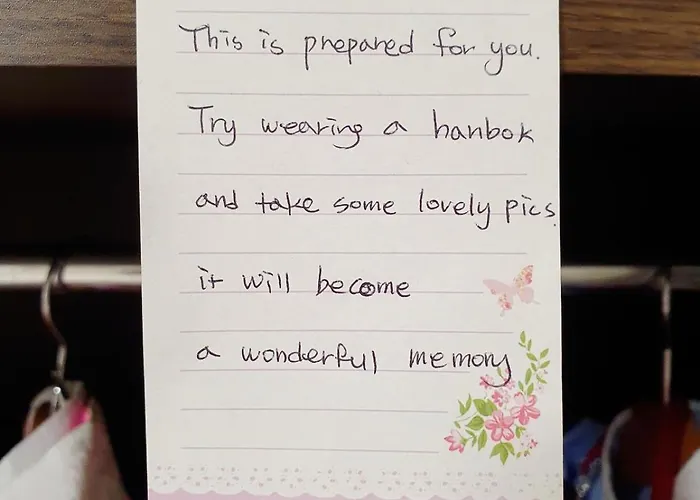 This is prepared for you.
Try wearing a hanbok
and take some lovely pics.
it will become
a wonderful memory